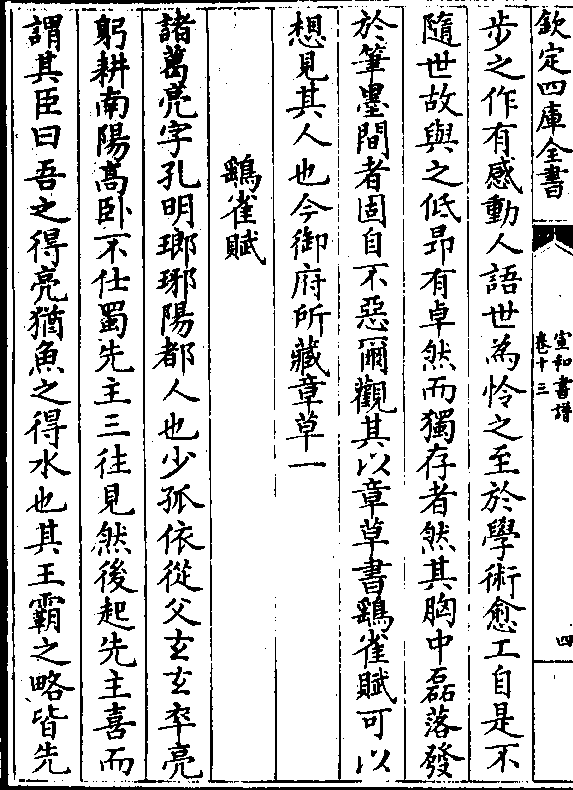 欽定四庫全書
宣和書譜
卷十三
四
步之作有感動人語世為怜之至於學術愈工自是不
隨世故與之低昻有卓然而獨存者然其胸中磊落發
於筆墨間者固自不惡爾觀其以章草書鷃雀賦可以
想見其人也今御府所藏章草一
鷃雀賦
諸葛亮字孔明瑯琊陽都人也少孤依從父玄玄卒亮
躬耕南陽髙卧不仕蜀先主三往見然後起先主喜而
謂其臣曰吾之得亮猶魚之得水也其王霸之略皆先